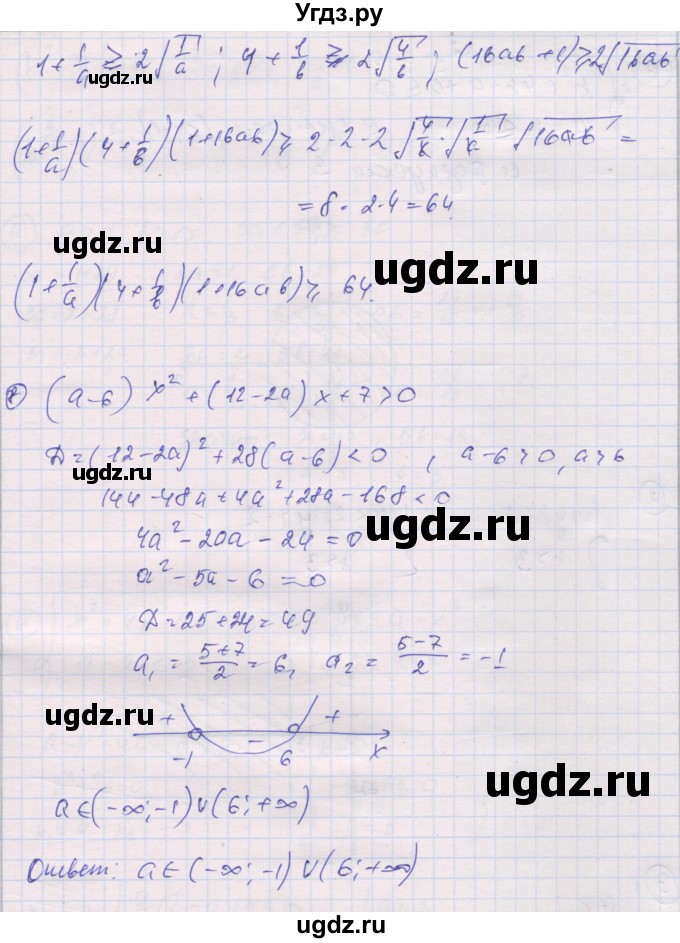 Угдз.ру
1 + 1/a ≥ 2√(1/a) ; 4 + 1/b ≥ 2√(4/b) ; (16ab + 1) ≥ 2√16ab
ugdz.ru
(1 + 1/a)(4 + 1/b)(1 + 16ab) ≥ 2 · 2 · 2 √(4/b) · √(1/a) √16ab =
= 8 · 2 · 4 = 64
ugdz.ru
ugdz.ru
(1 + 1/a)(4 + 1/b)(1 + 16ab) ≥ 64.
(a - 6) x² + (12 - 2a) x + 7 > 0
D = (12 - 2a)² + 28(a - 6) < 0 , a - 6 > 0, a > 6
144 - 48a + 4a² + 28a - 168 < 0
ugdz.ru
4a² - 20a - 24 = 0
a² - 5a - 6 = 0
D = 25 + 24 = 49
a₁ = (5+7)/2 = 6, a₂ = (5-7)/2 = -1
ugdz.ru
+ - +
-1 6 x
ugdz.ru
a ∈ (-∞; -1) ∪ (6; +∞)
Ответ: a ∈ (-∞; -1) ∪ (6; +∞)
ugdz.ru